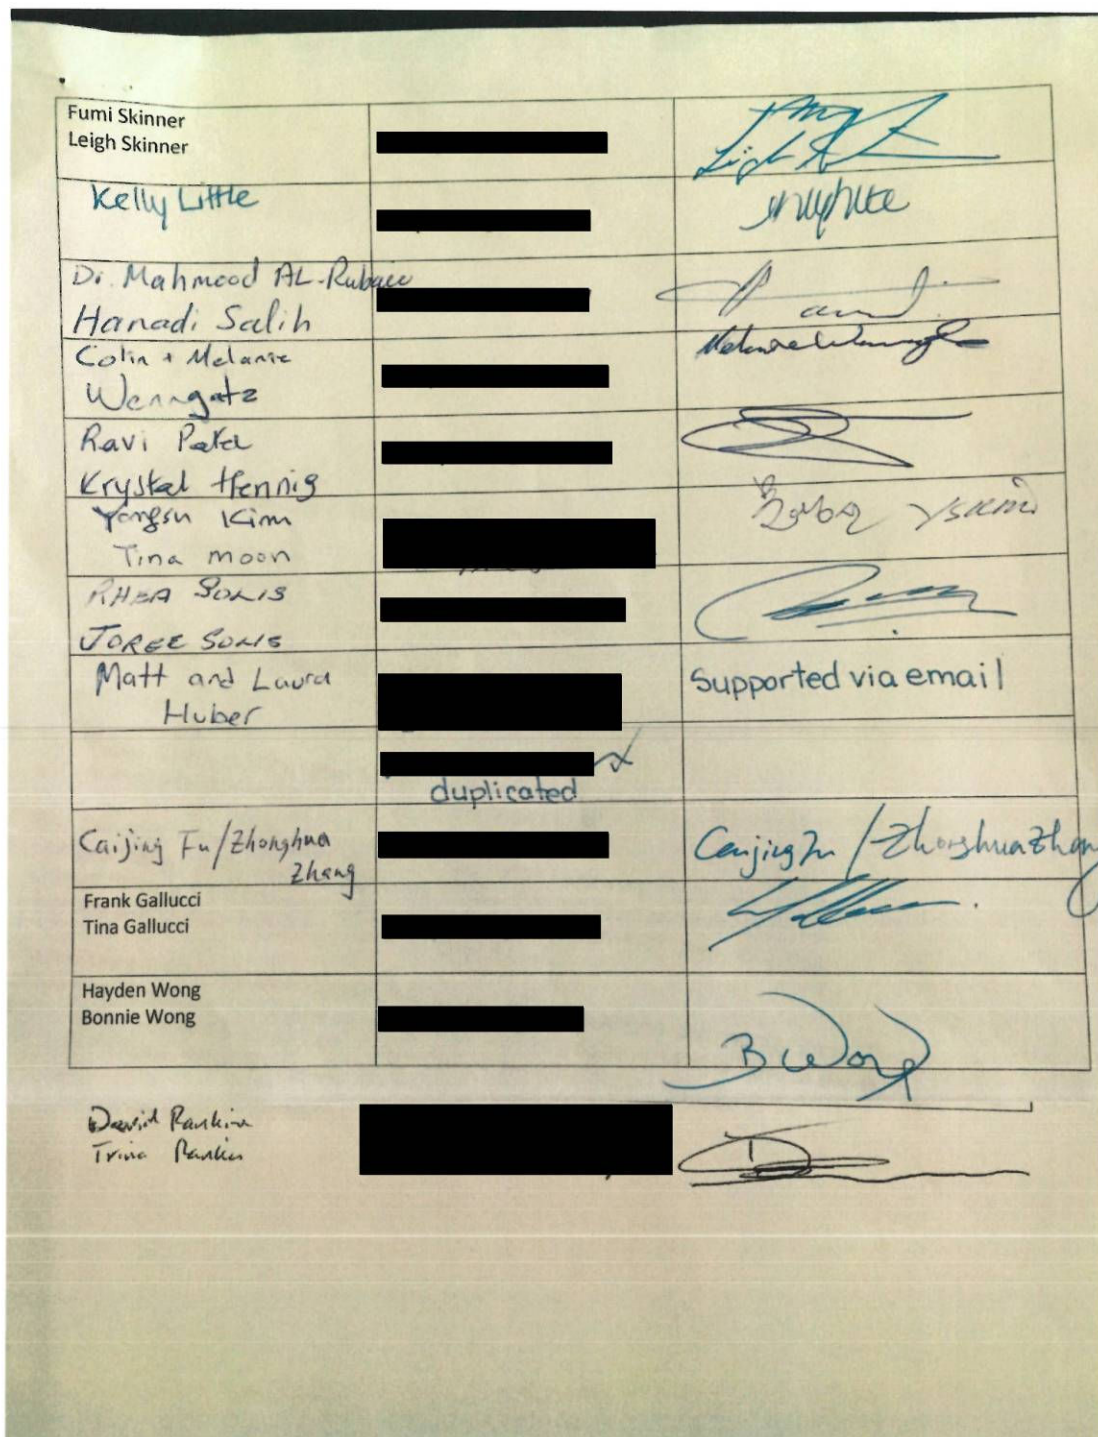 Fumi Skinner
Leigh Skinner
Kelly Little
Dr. Mahmood AL-Rubaee
Hanadi Salih
Colin + Melanie
Wenngatz
Ravi Patel
Krystal Hennig
Yongsu Kim
Tina moon
RHEA SOLIS
JOREE SOLIS
Matt and Laura
Huber
Supported via email
duplicated
Caijing Fu/Zhonghua
Zhang
Caijing Fu / Zhonghua Zhang
Frank Gallucci
Tina Gallucci
Hayden Wong
Bonnie Wong
B Wong
David Rankin
Trina Rankin